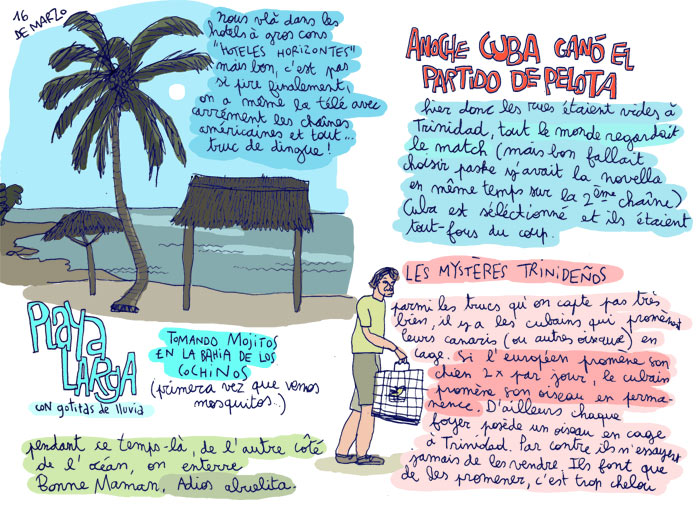 16
DE MARZO
nous vlà dans les
hotels à gros cons
"HOTELES HORIZONTES"
mais bon, c'est pas
si pire finalement,
on a même la télé avec
carrément les chaînes
américaines et tout...
truc de dingue !
PLAYA
LARGA
con gotitas de lluvia
TOMANDO MOJITOS
EN LA BAHIA DE LOS
COCHINOS
(primera vez que vemos
mosquitos...)
pendant ce temps-là, de l'autre côté
de l'océan, on enterre
Bonne Maman. Adios abuelita.
ANOCHE CUBA GANÓ EL
PARTIDO DE PELOTA
hier donc les rues étaient vides à
Trinidad, tout le monde regardait
le match (mais bon fallait
choisir paske y'avait la novella
en même temps sur la 2ème chaîne)
Cuba est séléctionné et ils étaient
tout-fous du coup.
LES MYSTÈRES TRINIDEÑOS
parmi les trucs qu'on capte pas très
bien, il y a les cubains qui promènent
leurs canaris (ou autres oiseaux) en
cage. Si l'européen promène son
chien 2x par jour, le cubain
promène son oiseau en perma-
nence. D'ailleurs chaque
foyer posède un oiseau en cage
à Trinidad. Par contre ils n'essayent
jamais de les vendre. Ils font que
de les promener, c'est trop chelou